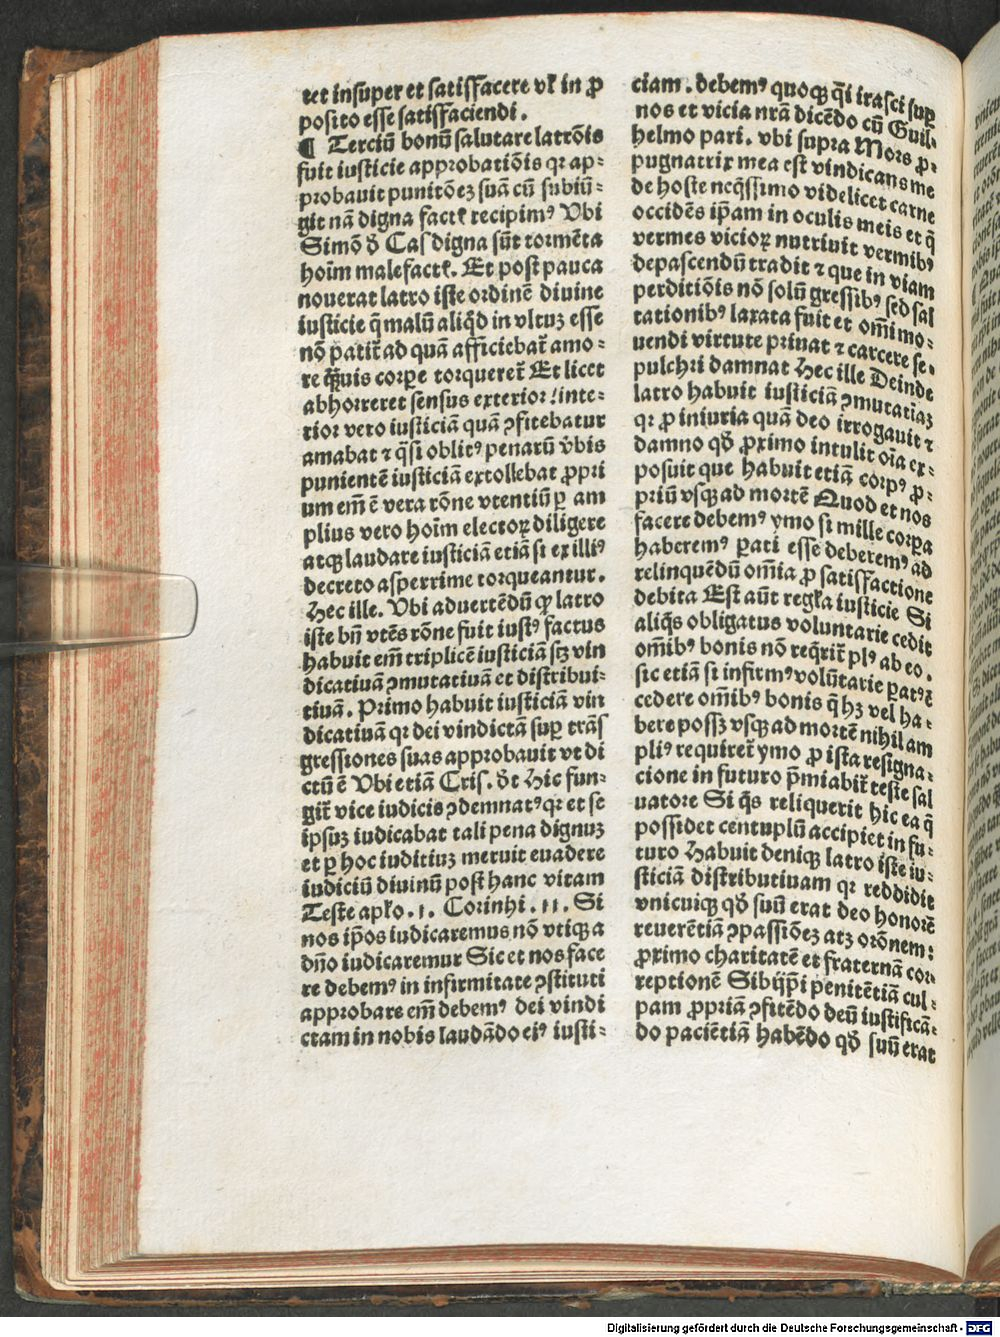 tet insuper et satisfacere vl̄ in ꝓ
posito esse satisfaciendi.
¶ Terciū bonū salutare latrōis
fuit iusticie approbatiōis qꝛ ap-
probauit punitōeꝫ suā cū subiū-
git nā digna factꝭ recipimꝰ Vbi
Simō ð Cas digna sūt tormēta
hoīm malefactꝭ. Et post pauca
nouerat latro iste ordinē diuine
iusticie q̄ malū aliqd̄ in vltuꝫ esse
nō patir̄ ad quā afficiebar̄ amo-
re q̄uis corꝑe torquerer̄ Et licet
abhorreret sensus exterior / inte-
rior vero iusticiā quā ꝯfitebatur
amabat ⁊ q̄si oblitꝰ penarū v̄bis
punientē iusticiā extollebat ꝓpri
um em̄ ē vera rōne vtentiū ꝑ am
plius vero hoīm electoꝝ diligere
atqꝫ laudare iusticiā etiā si ex illiꝰ
decreto asperrime torqueantur.
Hec ille. Vbi aduertēdū ꝙ latro
iste bn̄ vtēs rōne fuit iustꝰ factus
habuit em̄ triplicē iusticiā sꝫ vin
dicatiuā ꝯmutatiuā et distribui-
tiuā. Primo habuit iusticiā vin
dicatiuā qꝛ dei vindictā suꝑ trās
gressiones suas approbauit vt di
ctū ē Vbi etiā Cris. ðt Hic fun-
git̄ vice iudicis ꝯdemnatꝰ qꝛ et se
ipsuꝫ iudicabat tali pena dignuꝫ
et ꝑ hoc iuditiuꝫ meruit euadere
iudiciū diuinū post hanc vitam
Teste apl̄o. 1. Corinhi. 11. Si
nos ip̄os iudicaremus nō vtiqꝫ a
dn̄o iudicaremur Sic et nos face
re debemꝰ in infirmitate ꝯstituti
approbare em̄ debemꝰ dei vindi
ctam in nobis laudādo eiꝰ iusti-
ciam. debemꝰ quoqꝫ q̄i irasci suꝑ
nos et vicia nr̄a dicēdo cū Guil-
helmo pari. vbi supra Mors ꝓ-
pugnatrix mea est vindicans me
de hoste neq̄ssimo videlicet carne
occidēs ip̄am in oculis meis et q̄
vermes vicioꝝ nutriuit vermibꝰ
depascendū tradit ⁊ que in viam
perditiōis nō solū gressibꝰ sed sal
tationibꝰ laxata fuit et om̄i mo-
uendi virtute priuat ⁊ carcere se-
pulchri damnat Hec ille Deinde
latro habuit iusticiā ꝯmutatiāꝫ
qꝛ ꝓ iniuria quā deo irrogauit ⁊
damno qð ꝓximo intulit oīa ex-
posuit que habuit etiā corpꝰ ꝓ-
priū vsqꝫ ad mortē Quod et nos
facere debemꝰ ymo si mille corꝑa
haberemꝰ ꝑati esse deberemꝰ ad
relinquēdū om̄ia ꝓ satisfactione
debita Est aūt regl̄a iusticie Si
aliq̄s obligatus voluntarie cedit
om̄ibꝰ bonis nō req̄rit̄ plꝰ ab eo.
sic etiā si infirmꝰ volūtarie ꝑatꝰ ē
cedere om̄ibꝰ bonis q̄ hꝫ vel ha-
bere possꝫ vsqꝫ ad mortē nihil am
pliꝰ requirer̄ ymo ꝓ ista resigna-
cione in futuro p̄miabit̄ teste sal
uatore Si q̄s reliquerit hic ea q̄
possidet centuplū accipiet in fu-
turo Habuit deniqꝫ latro iste iu-
sticiā distributiuam qꝛ reddidit
vnicuiqꝫ qð suū erat deo honorē
reuerētiā ꝯpassiōeꝫ atꝫ orōnem:
ꝓximo charitatē et fraternā cor-
reptionē Sibijp̄i penitētiā cul-
pam ꝓpriā ꝯfitēdo deū iustificā-
do paciētiā habēdo qð suū erat
Digitalisierung gefördert durch die Deutsche Forschungsgemeinschaft - DFG